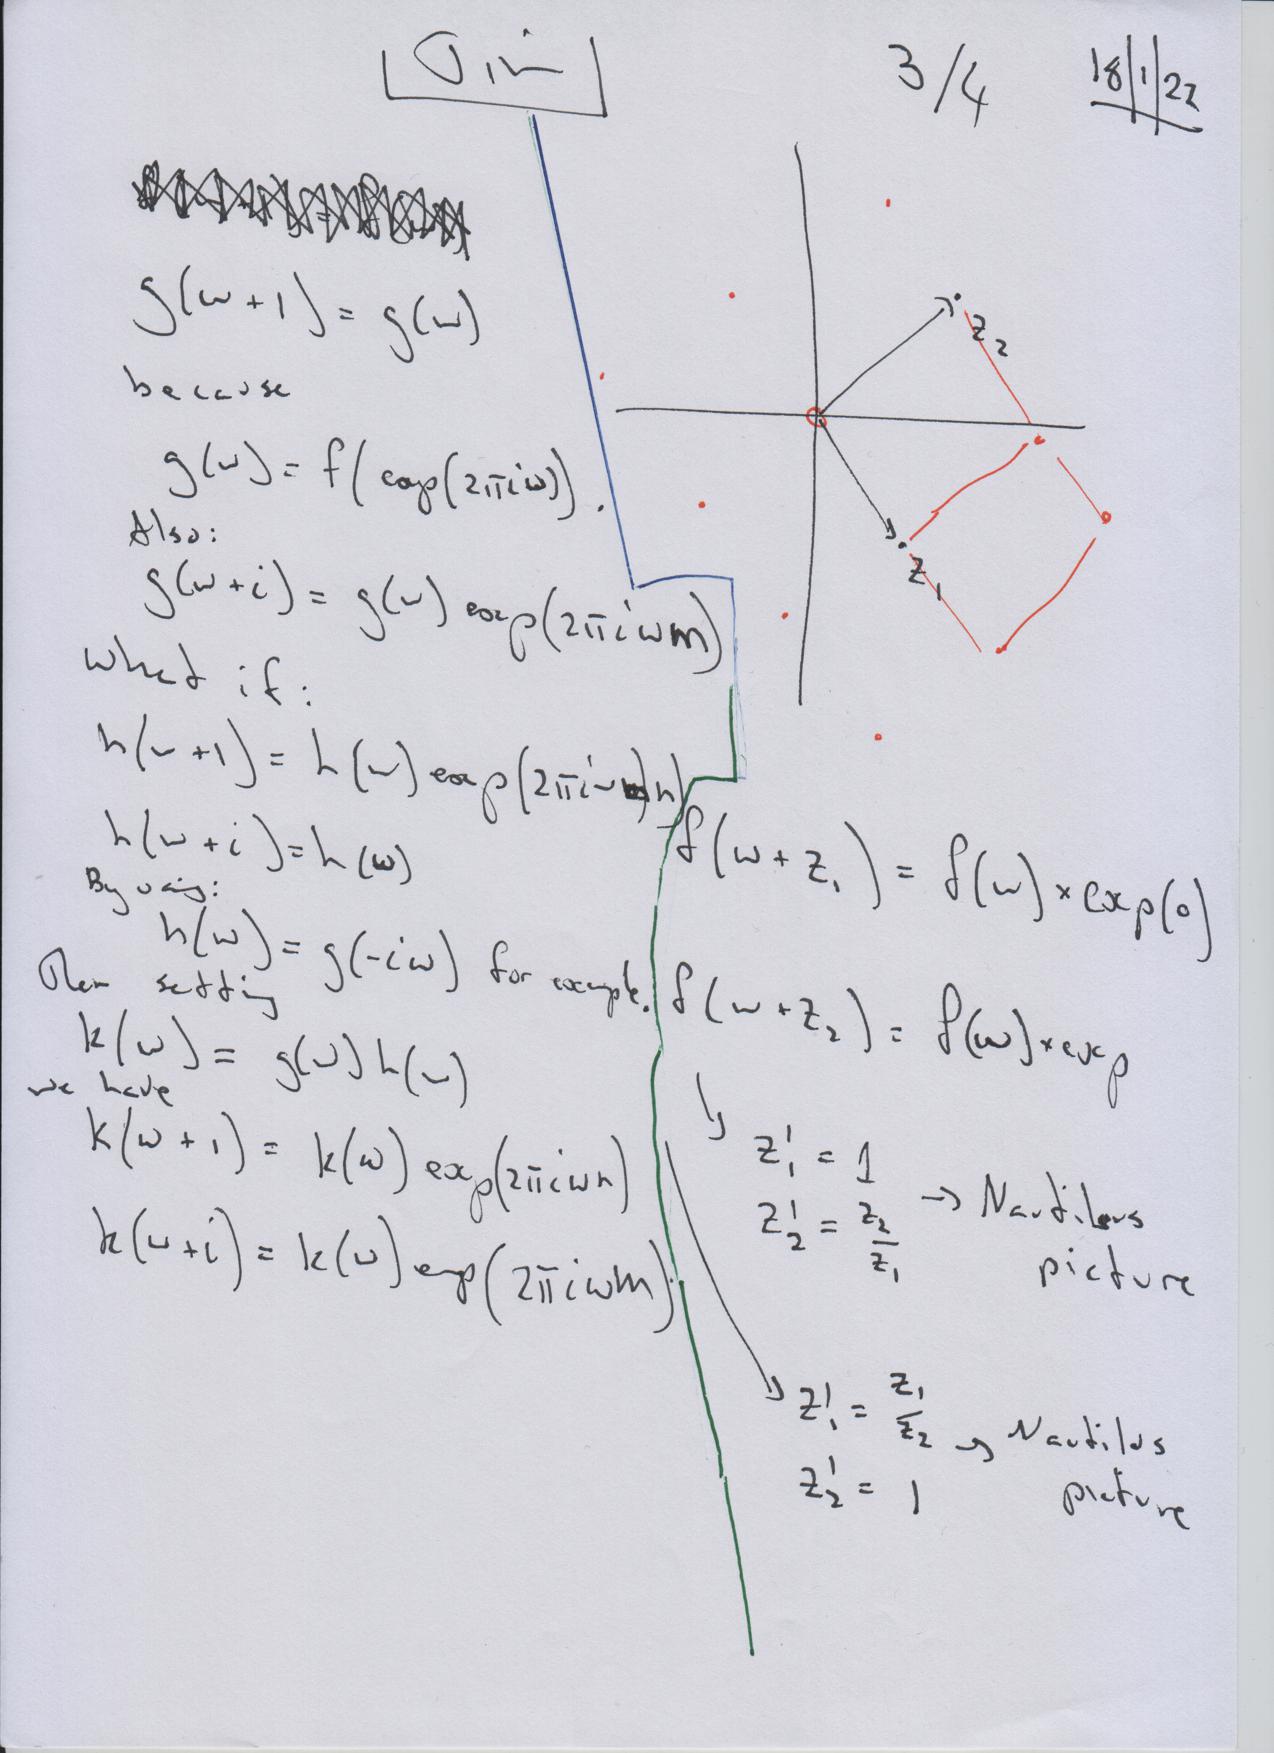 3/4
18/1/22
g(w+1) = g(w)
because
g(w) = f(exp(2πiw)).
Also:
g(w+i) = g(w) exp(2πiwm)
What if:
h(w+1) = h(w) exp(2πiwn)
h(w+i) = h(w)
By using:
h(w) = g(-iw) for example.
Then setting
k(w) = g(w)h(w)
we have
k(w+1) = k(w) exp(2πiwn)
k(w+i) = k(w) exp(2πiwm).
z₂
z₁
f(w+z₁) = f(w) × exp(0)
f(w+z₂) = f(w) × exp
z₁' = 1
z₂' = z₂/z₁ → Nautilus
picture
z₁' = z₁/z₂ → Nautilus
z₂' = 1 picture